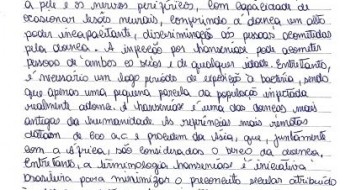 a pele e os nervos periféricos, com capacidade de
ocasionar lesões neurais, conferindo à doença um alto
poder incapacitante, discriminação às pessoas acometidas
pela doença. A infecção por hanseníase pode acometer
pessoas de ambos os sexos e de qualquer idade. Entretanto,
é necessário um logo período de exposição à bactéria, sendo
que apenas uma pequena parcela da população infectada
realmente adoece. A hanseníase é uma das doenças mais
antigas da humanidade. As referências mais remotas
datam de 600 a.c e procedem da Ásia, que, juntamente
com a África, são considerados o berço da doença.
Entretanto, a terminologia hanseníase é iniciativa
brasileira para minimizar o preconceito secular atribuído